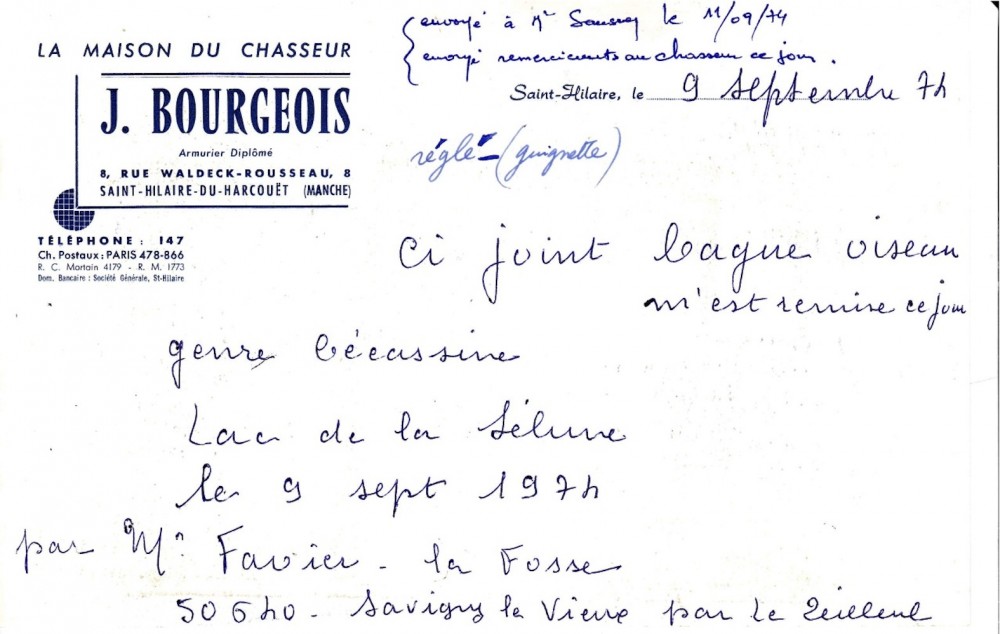 LA MAISON DU CHASSEUR
J. BOURGEOIS
Armurier Diplômé
8, RUE WALDECK-ROUSSEAU, 8
SAINT-HILAIRE-DU-HARCOUËT (MANCHE)
TÉLÉPHONE : 147
Ch. Postaux : PARIS 478-866
R. C. Mortain 4179 - R. M. 1773
Dom. Bancaire : Société Générale, St-Hilaire
envoyé à Mr le 11/09/74
envoyé remerciements au chasseur ce jour.
Saint-Hilaire, le 9 Septembre 74
réglé - (guignette)
Ci joint bague oiseau
m'est remise ce jour
genre bécassine
Lac de la Sélune
le 9 sept 1974
par Mr Favier - la Fosse
50640 - Savigny le Vieux par le Teilleul